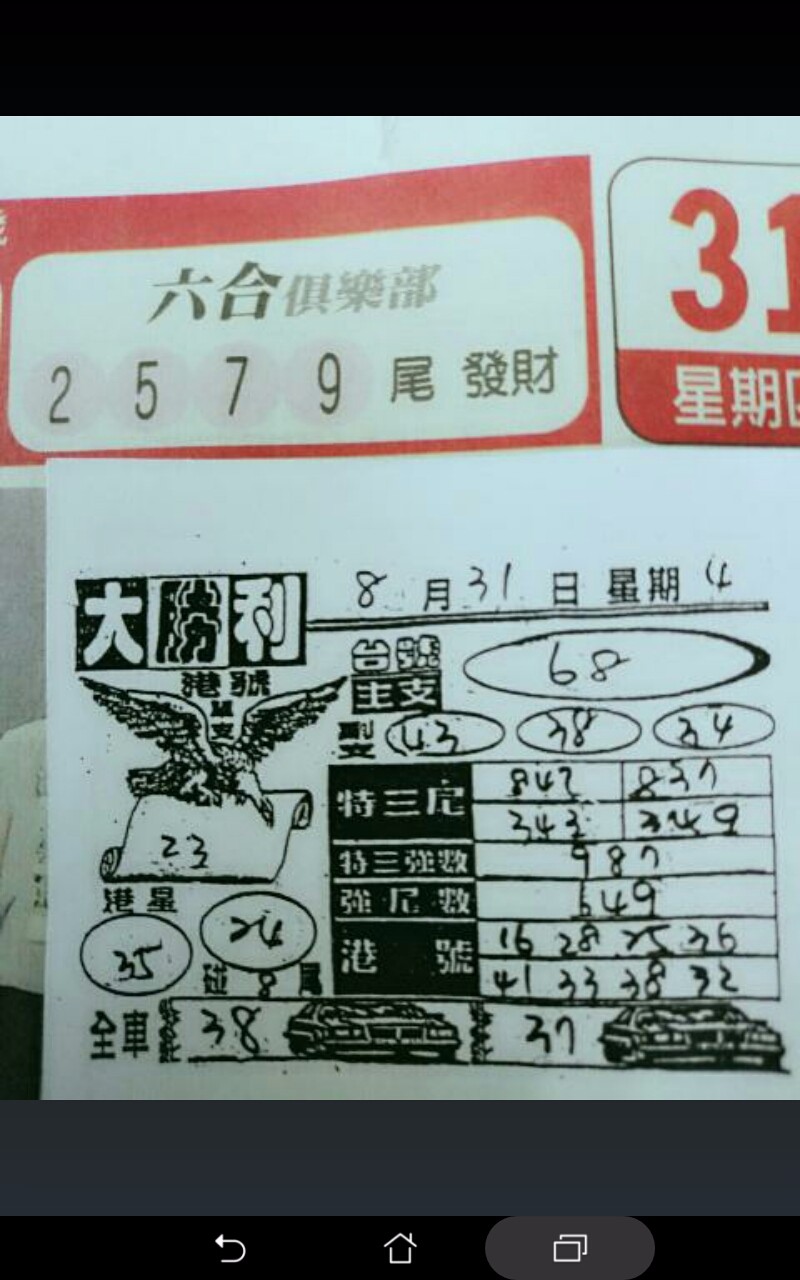 六合俱樂部
2 5 7 9 尾 發財
31
星期
大勝利
8月31日星期4
港號
單支
23
台號
主支
68
副支
43 38 34
特三尾
842 837
343 349
特三強數
987
強尾數
649
港星
35 24
碰8尾
港號
16 28 25 36
41 33 38 32
全車
38 37